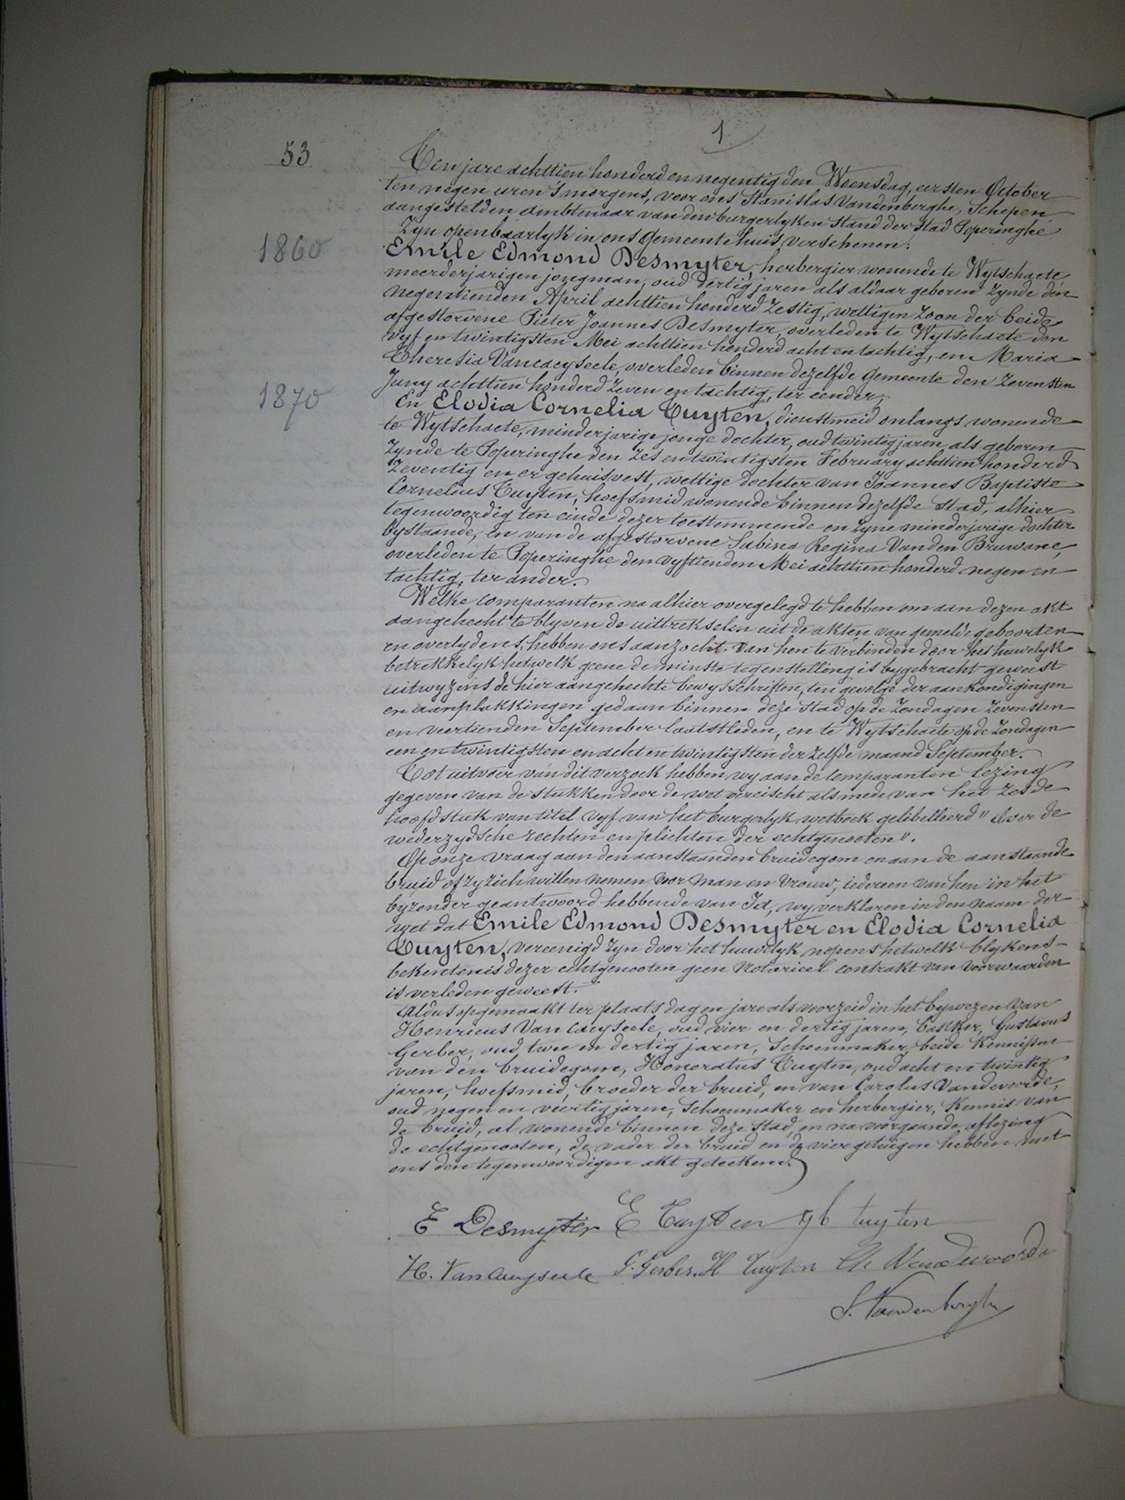 1
53
Ten jare achttien honderd en negentig den Woensdag, eersten October
ten negen uren 's morgens, voor ons Stanislas Vandenberghe, Schepen
aangestelden ambtenaar van den burgerlyken stand der stad Poperinghe
Zyn openbaarlyk in ons gemeentehuis verschenen:
1860
Emile Edmond Desmyter, herbergier wonende te Wytschaete
meerderjarigen jongman, oud dertig jaren als aldaar geboren zynde den
negentienden April achttien honderd zestig, wettigen zoon der beide
afgestorvene Pieter Joannes Desmyter, overleden te Wytschaete den
vyf en twintigsten Mei achttien honderd acht en tachtig, en Maria
Theresia Vancayseele, overleden binnen dezelfde gemeente den zevensten
Juny achttien honderd zeven en tachtig, ter eender;
1870
En Elodia Cornelia Tuyten, dienstmeid onlangs wonende
te Wytschaete, minderjarige jonge dochter, oud twintig jaren als geboren
zynde te Poperinghe den zes en twintigsten February achttien honderd
zeventig en er gehuisvest, wettige dochter van Joannes Baptiste
Cornelius Tuyten, hoefsmid wonende binnen dezelfde stad, alhier
tegenwoordig ten einde dezer toestemmende en zyne minderjarige dochter
bystaande, en van de afgestorvene Sabina Regina Vanden Bruwane,
overleden te Poperinghe den vyftienden Mei achttien honderd negen en
tachtig, ter ander.
Welke comparanten na alhier overgelegd te hebben om aan dezen akt
aangehecht te blyven de uittrekselen uit de akten van gemelde geboorten
en overlydens, hebben ons aanzocht van hen te verbinden door het huwelyk
betrekkelyk hetwelk geene de minste tegenstelling is bygebracht geweest
uitwyzens de hier aangehechte bewysschriften, ten gevolge der aankondigingen
en aanplakkingen gedaan binnen deze stad op de zondagen zevensten
en veertienden September laatstleden, en te Wytschaete op de zondagen
een en twintigsten en acht en twintigsten der zelfde maand September.
Tot uitvoer van dit verzoek hebben wy aan de comparanten lezing
gegeven van de stukken door de wet vereischt alsmede van het zesde
hoofdstuk van titel vyf van het burgerlyk wetboek gelibelleerd "Over de
wederzydsche rechten en plichten der echtgenooten".
Op onze vraag aan den aanstaanden bruidegom en aan de aanstaande
bruid of zy zich willen nemen voor man en vrouw, iedereen van hen in het
byzonder geantwoord hebbende van Ja, wy verklaren in den naam der
wet dat Emile Edmond Desmyter en Elodia Cornelia
Tuyten, vereenigd zyn door het huwelyk nopens hetwelk blykens
bekendtenis dezer echtgenooten geen notarieel contrakt van voorwaarden
is verleden geweest.
Aldus opgemaakt ter plaats dag en jare als voorzeid in het bywezen van
Henricus Van Cayseele, oud vier en dertig jaren, bakker, Gustavus
Gerber, oud twee en dertig jaren, schoenmaker, beide kennissen
van den bruidegom, Honoratus Tuyten, oud acht en twintig
jaren, hoefsmid, broeder der bruid, en van Carolus Vandevoorde,
oud negen en veertig jaren, schoenmaker en herbergier, kennis van
de bruid, al wonende binnen deze stad, en na voorgaande aflezing
de echtgenooten, de vader der bruid en de vier getuigen hebben met
ons den tegenwoordigen akt geteekend.
E Desmyter E Tuyten J b tuyten
H. Van Cayseele G. Gerber. H Tuyten Ch Vandevoorde
S. Vandenberghe